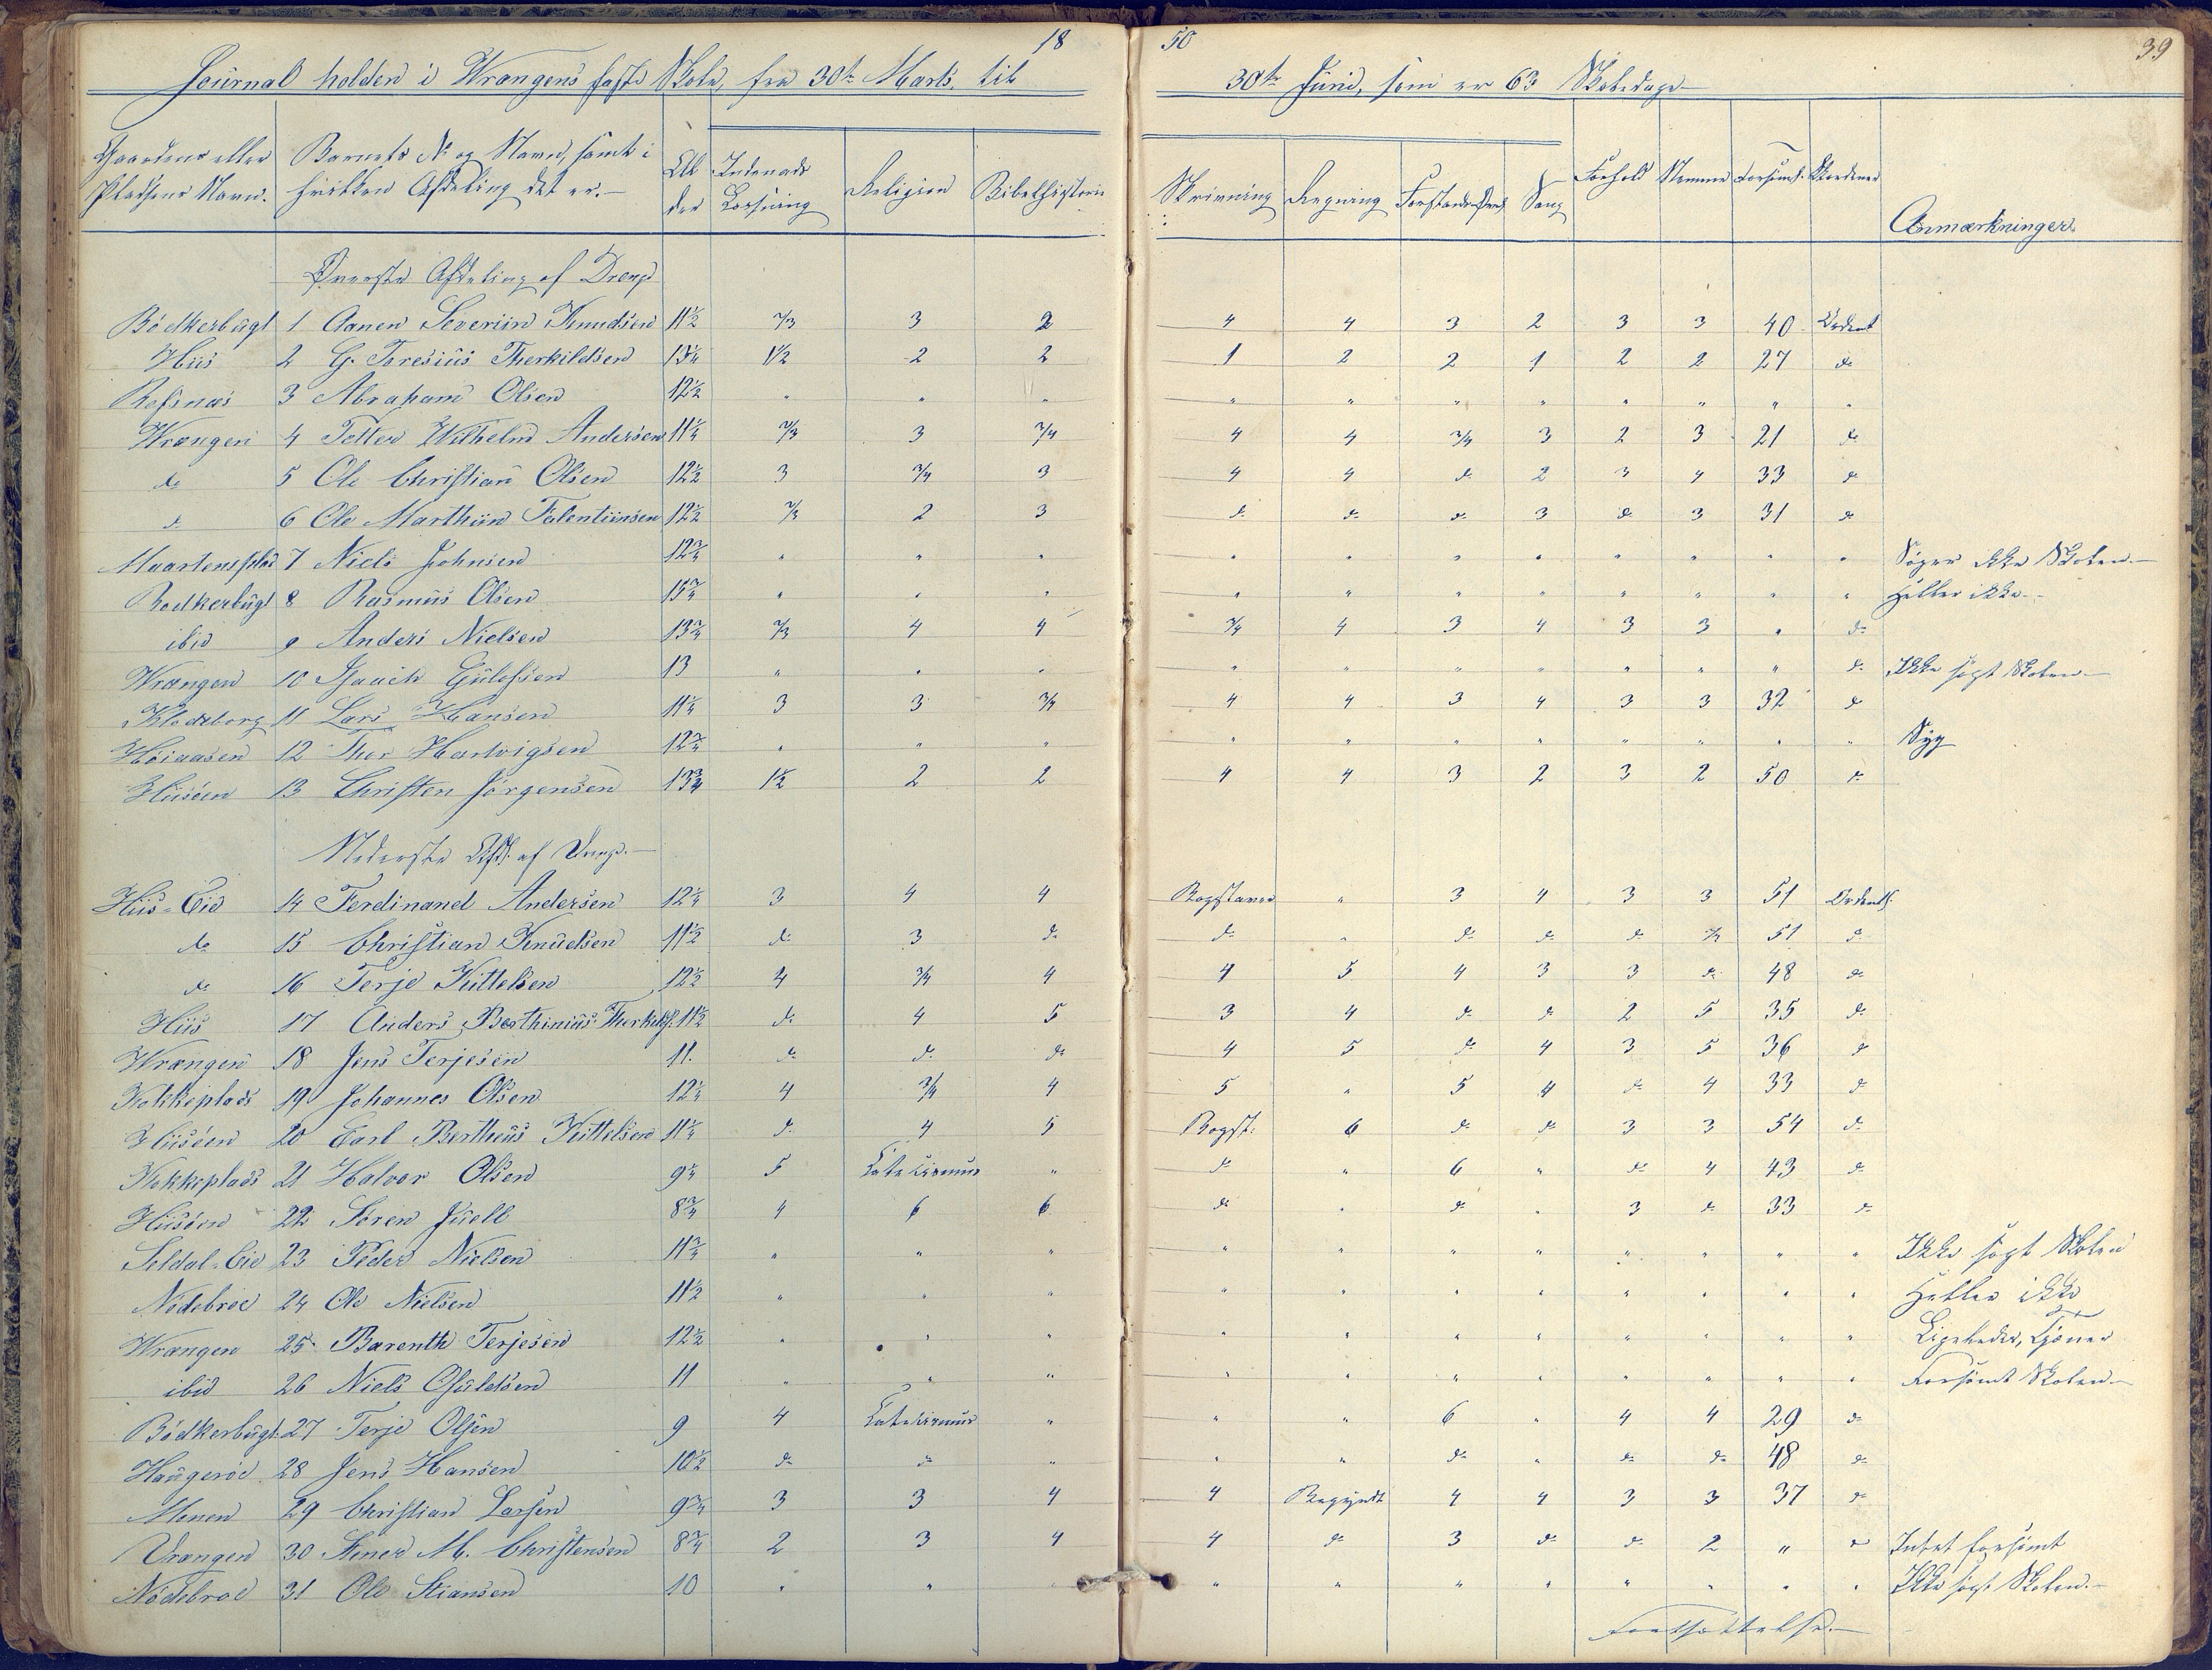 18 50 39
Journal holden i Wrangens faste Skole, fra 30te Marts, til 30te Juni, som er 63 Skoledage
Gaardens eller Pladsens Navn. Barnets No og Navn, samt i hvilken Afdeling det er. Alder Indenads Læsning Religion Bibelhistorie Skrivning Regning Forstands Øvels Sang Forhold Nemme Forsömt Anmærkninger
Øverste Afdeling af Drenge
Bödkerbugt 1 Aanen Severiin Knudsen 11½ 2/3 3 2 4 4 3 2 3 3 40 Ordent
Hiis 2 G. Teresius Therkildsen 13¼ 1½ 2 2 1 2 2 1 2 2 27 do
Refsnæs 3 Abraham Olsen 12½ " " " " " " " " " " "
Wrangen 4 Tellev Wilhelm Andersen 11¼ 2/3 3 3/4 4 4 3/4 3 2 3 21 do
do 5 Ole Christian Olsen 12½ 3 3/4 3 4 4 do 2 3 4 33 do
do 6 Ole Marthiin Falentiinsen 12½ 2/3 2 3 do do do 3 do 3 31 do
Maartensplds 7 Niels Johnsen 12¾ " " " " " " " " " " " Söger ikke Skolen
Bödkerbugt 8 Rasmus Olsen 13¾ " " " " " " " " " " " Heller ikke
ibid 9 Anders Nielsen 13¾ 2/3 4 4 3/4 4 3 4 3 3 " do
Wrangen 10 Isaach Gulofsen 13 " " " " " " " " " " do Ikke sögt Skolen
Klodeborg 11 Lars Hansen 11¼ 3 3 3/4 4 4 3 4 3 3 32 do
Höiaasen 12 Thor Hartvigsen 12¾ " " " " " " " " " " " Syg
Hiisöen 13 Christen Jörgensen 13¾ 1½ 2 2 4 4 3 2 3 2 50 do
Nederste Afd. af Drenge
Hiis-Eie 14 Ferdinand Andersen 12¼ 3 4 4 Bogstaver " 3 4 3 3 51 Ordentl.
do 15 Christian Knudsen 11½ do 3 do do " do do do 2/3 51 do
do 16 Terje Kittelsen 12½ 4 3/4 4 4 5 4 3 3 do 48 do
Hiis 17 Anders Berthinius Therkilds. 11½ do 4 5 3 4 do do 2 5 35 do
Wrangen 18 Jens Terjesen 11 do do do 4 5 do 4 3 5 36 do
Kokkeplads 19 Johannes Olsen 12¼ 4 3/4 4 5 " 5 4 do 4 33 do
Hiisöen 20 Carl Bertheus Kittelsen 11¼ do 4 5 Bogst: 6 do do 3 3 54 do
Kokkeplads 21 Halvor Olsen 9¼ 5 Catecismus " do " 6 " do 4 43 do
Hiisöen 22 Sören Juell 8¾ 4 6 6 do " do " 3 do 33 do
Seldal-Eie 23 Peder Nielsen 11¾ " " " " " " " " " " " Ikke sögt Skolen
Nödebroe 24 Ole Nielsen 11½ " " " " " " " " " " " Heller ikke
Wrangen 25 Barenth Terjesen 12½ " " " " " " " " " " " Ligeledes, Tjener
ibid 26 Niels Osuldsen 11 " " " " " " " " " " " Forsömt Skolen
Bödkerbugt 27 Terje Olsen 9 4 Catecismus " " " 6 " 4 4 29 do
Haugeröe 28 Jens Hansen 10½ do do " " " do " do do 48 do
Monen 29 Christian Larsen 9¾ 3 3 4 4 Begyndt 4 4 3 3 37 do
Vrangen 30 Stener M. Christensen 8¾ 2 3 4 4 do 3 do do 2 " do Intet forsömt
Nödebroe 31 Ole Stiansen 10 " " " " " " " " " " " Ikke sögt Skolen
Fortsættelse